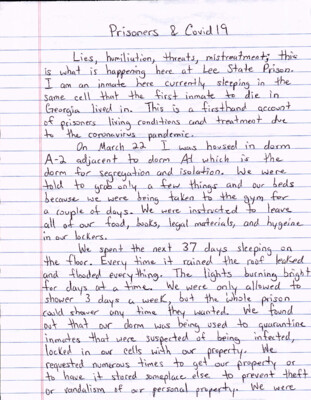 Prisoners & Covid19
Lies, humiliation, threats, mistreatment; this
is what is happening here at Lee State Prison.
I am an inmate here currently sleeping in the
same cell that the first inmate to die in
Georgia lived in. This is a firsthand account
of prisoners living conditions and treatment due
to the coronavirus pandemic.
On March 22 I was housed in dorm
A-2 adjacent to dorm A1 which is the
dorm for segregation and isolation. We were
told to grab only a few things and our beds
because we were being taken to the gym for
a couple of days. We were instructed to leave
all of our food, books, legal materials, and hygeine
in our lockers.
We spent the next 37 days sleeping on
the floor. Every time it rained the roof leaked
and flooded everything. The lights burning bright
for days at a time. We were only allowed to
shower 3 days a week, but the whole prison
could shower any time they wanted. We found
out that our dorm was being used to quarantine
inmates that were suspected of being infected,
locked in our cells with our property. We
requested numerous times to get our property or
to have it stored someplace else to prevent theft
or vandalism of our personal property. We were